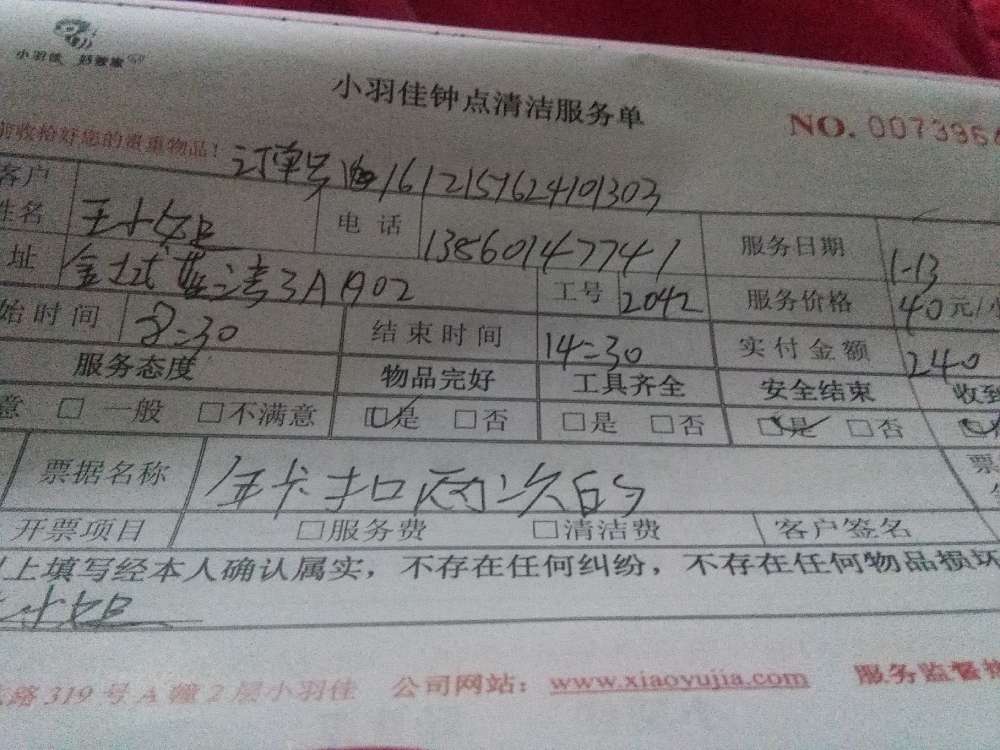 小羽佳
小羽佳钟点清洁服务单
NO. 007395
前收拾好您的贵重物品！
订单号 161215762410 1303
客户姓名 王小姐 电话 13860147741 服务日期 1-13
址 金 湾3A1902 工号 2042 服务价格 40元/
始时间 8:30 结束时间 14:30 实付金额 240
服务态度 物品完好 工具齐全 安全结束 收到
意 □一般 □不满意 ☑是 □否 □是 □否 ☑是 □否
票据名称 年卡扣两次的 票
开票项目 □服务费 □清洁费 客户签名
以上填写经本人确认属实，不存在任何纠纷，不存在任何物品损坏
王小姐
路319号A幢2层小羽佳 公司网站：www.xiaoyujia.com 服务监督